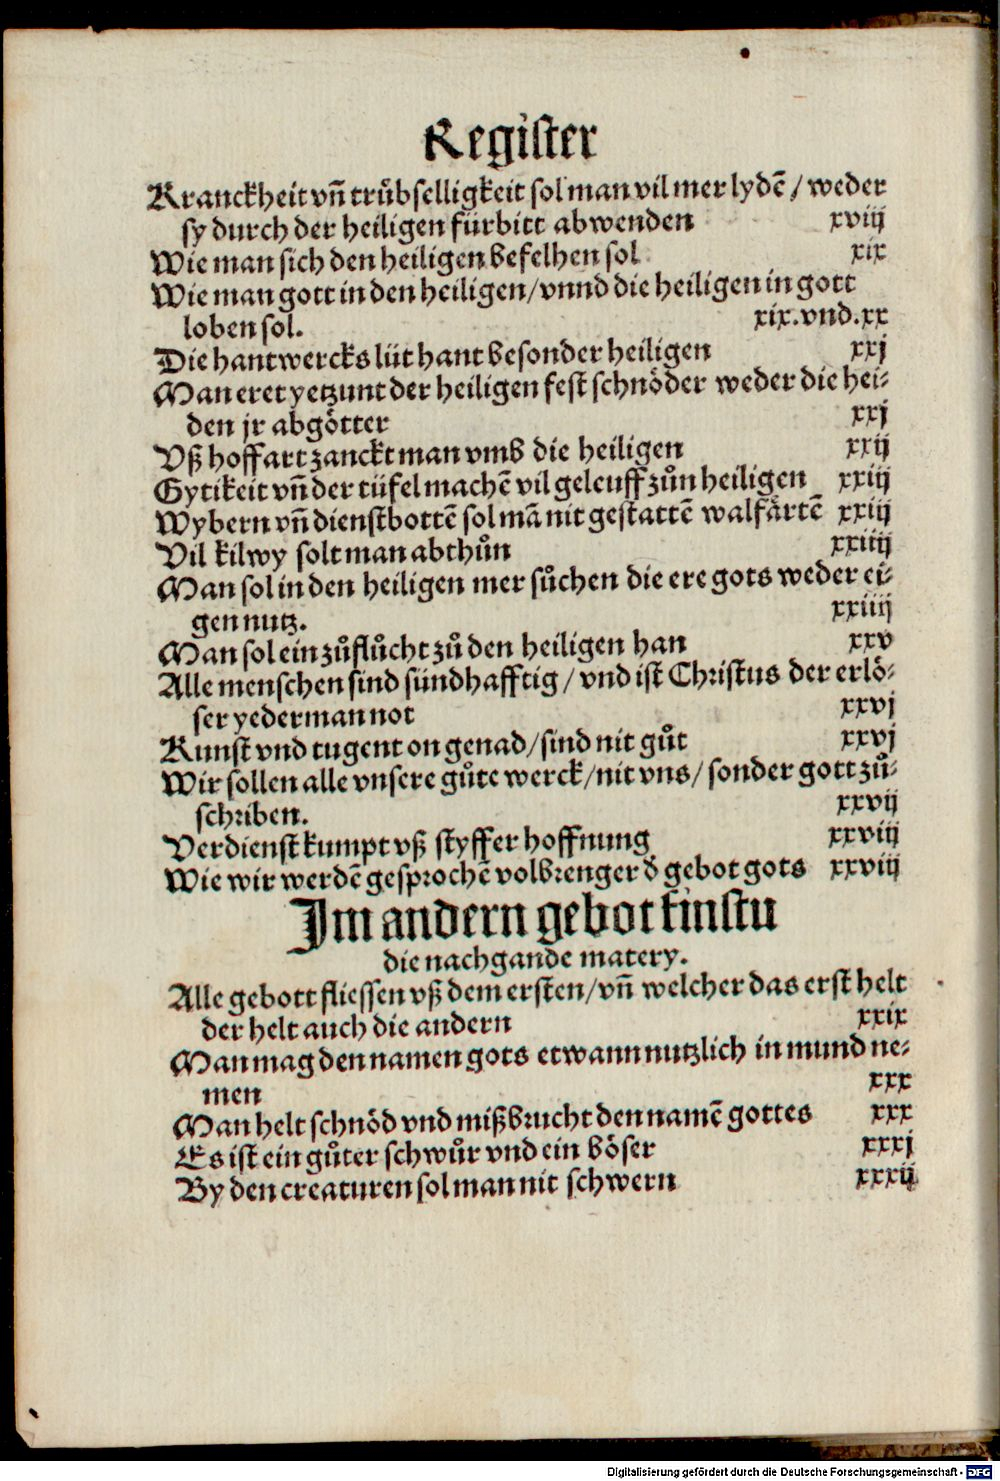 Register
Kranckheit vñ trůbselligkeit sol man vil mer lydē / weder
sy durch der heiligen fürbitt abwenden xviij
Wie man sich den heiligen befelhen sol xix
Wie man gott in den heiligen / vnnd die heiligen in gott
loben sol. xix.vnd.xx
Die hantwercks lüt hant besonder heiligen xxj
Man eret yetzunt der heiligen fest schnöder weder die hei⸗
den jr abgötter xxj
Vß hoffart zanckt man vmb die heiligen xxij
Gytikeit vñ der tüfel machē vil geleuff zůn heiligen xxiij
Wybern vñ dienstbottē sol mā nit gestattē walfärtē xxiij
Vil kilwy solt man abthůn xxiiij
Man sol in den heiligen mer sůchen die ere gots weder ei⸗
gen nutz. xxiiij
Man sol ein zůflůcht zů den heiligen han xxv
Alle menschen sind sündhafftig / vnd ist Christus der erlö⸗
ser yederman not xxvj
Kunst vnd tugent on genad / sind nit gůt xxvj
Wir sollen alle vnsere gůte werck / nit vns / sonder gott zů⸗
schriben. xxvij
Verdienst kumpt vß styffer hoffnung xxviij
Wie wir werdē gesprochē volbrenger d gebot gots xxviij
Im andern gebot finstu
die nachgande matery.
Alle gebott fliessen vß dem ersten / vñ welcher das erst helt
der helt auch die andern xxix
Man mag den namen gots etwann nutzlich in mund ne⸗
men xxx
Man helt schnöd vnd mißbrucht den namē gottes xxx
Es ist ein gůter schwůr vnd ein böser xxxj
By den creaturen sol man nit schwern xxxij
Digitalisierung gefördert durch die Deutsche Forschungsgemeinschaft - DFG